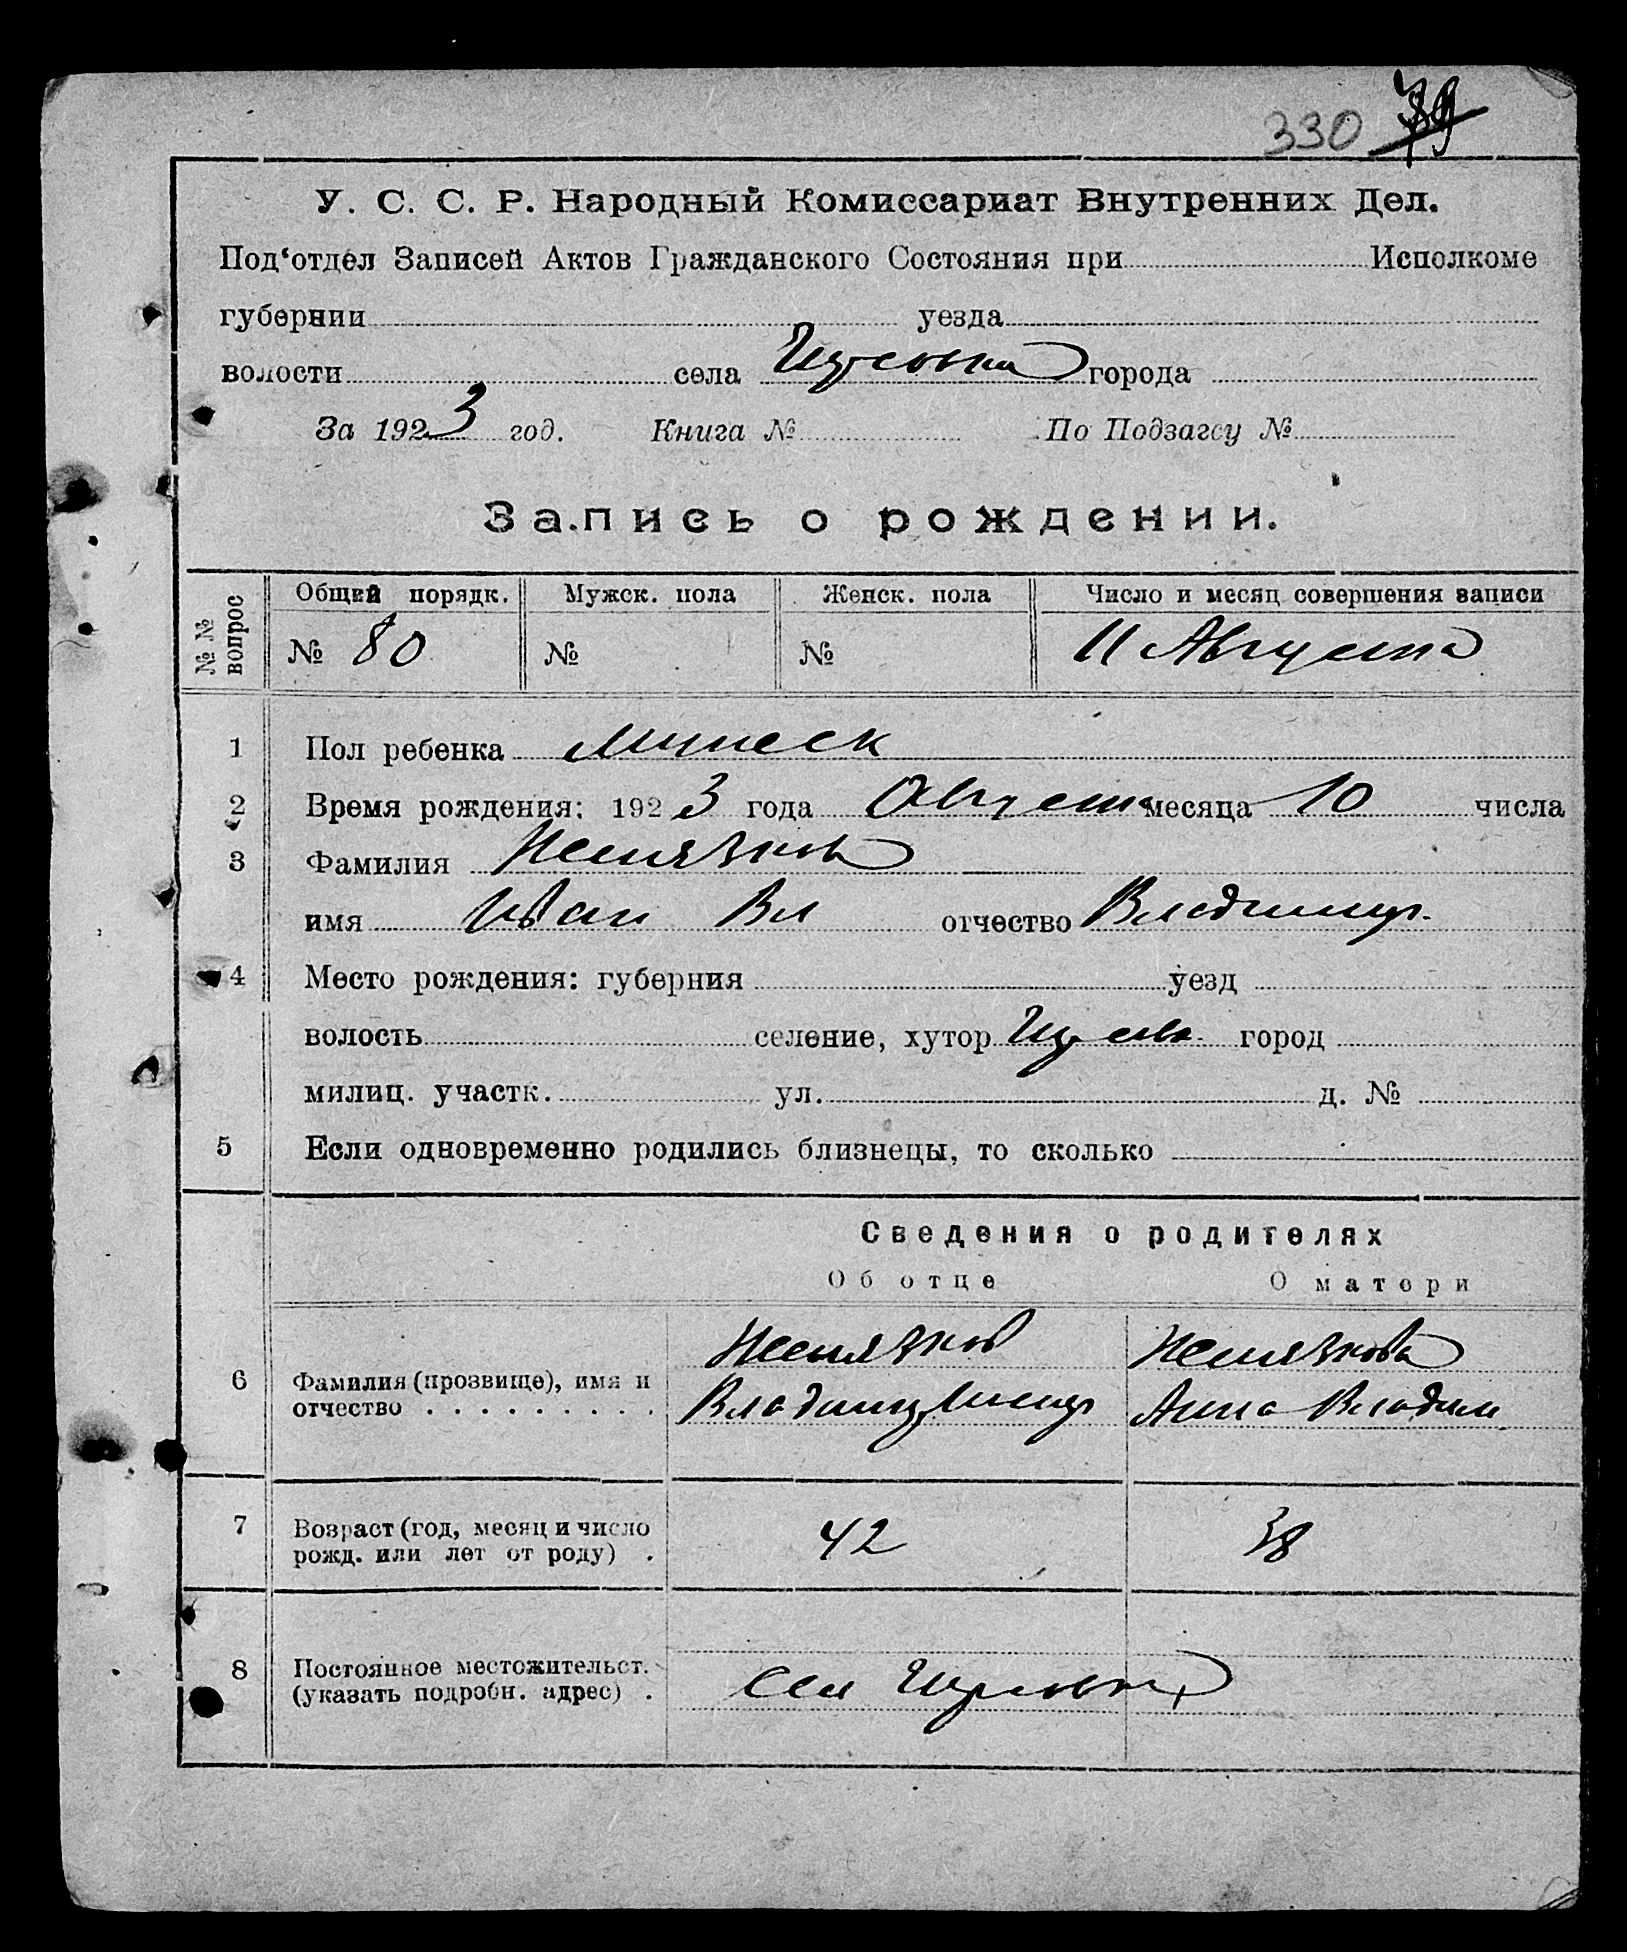 330
У. С. С. Р. Народный Комиссариат Внутренних Дел.
Под‘отдел Записей Актов Гражданского Состояния при Исполкоме
губернии уезда
волости села города
За 1923 год. Книга № По Подзагсу №
Запись о рождении.
№№ вопрос Общий порядк. Мужск. пола Женск. пола Число и месяц совершения записи
№ 80 № № 11 Августа
1 Пол ребенка
2 Время рождения: 1923 года Августа месяца 10 числа
3 Фамилия
имя Иван Вл отчество Владимир.
4 Место рождения: губерния уезд
волость селение, хутор город
милиц. участк. ул. д. №
5 Если одновременно родились близнецы, то сколько
Сведения о родителях
Об отце О матери
6 Фамилия (прозвище), имя и
отчество . . . . . . . . . Владимир Анна Владим
7 Возраст (год, месяц и число
рожд. или лет от роду) . 42 38
8 Постоянное местожительст.
(указать подробн. адрес) . Сел